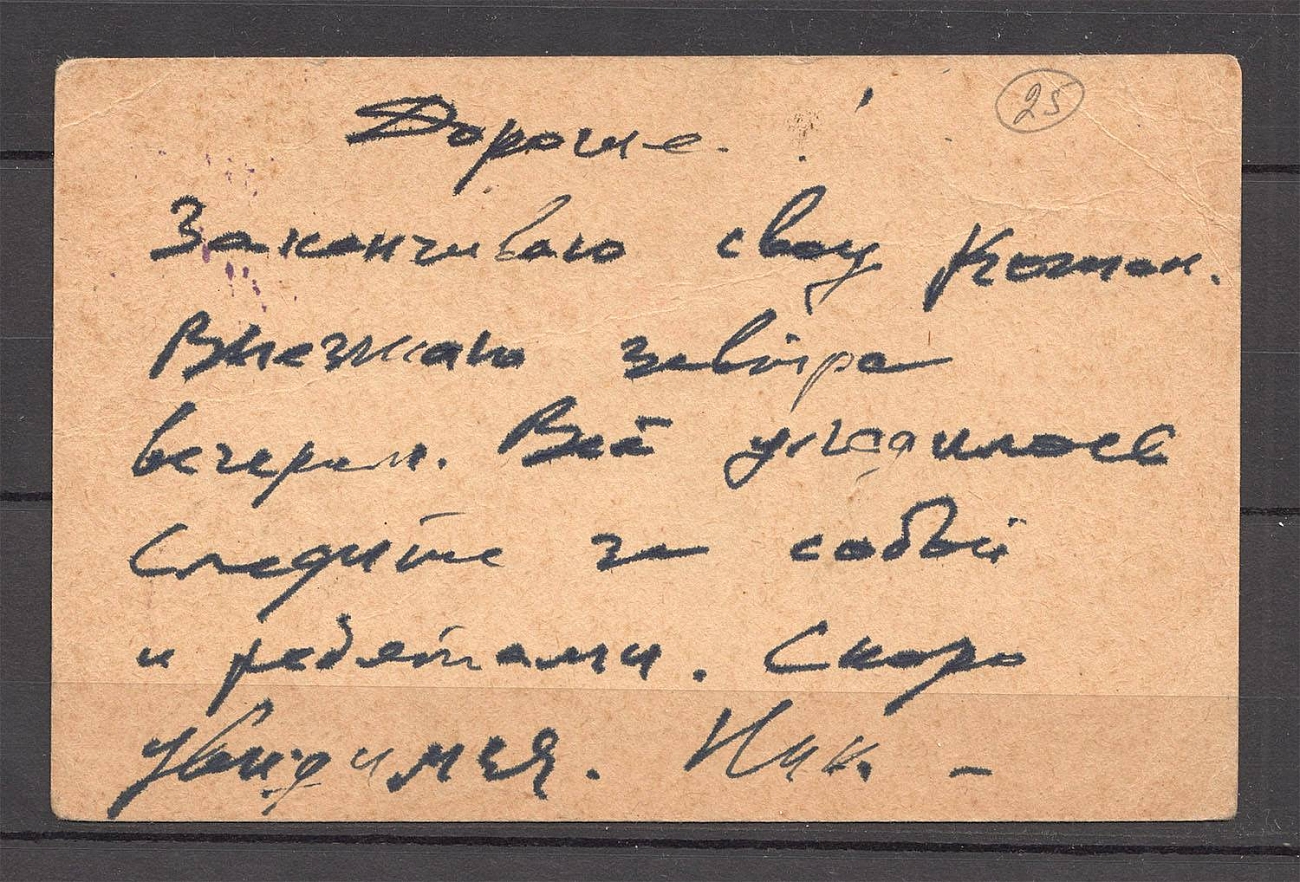 25
Дорогие!
Заканчиваю свою коман.
Выезжаю завтра
вечером. Всё уладилось
Следите за собой
и ребятами. Скоро
увидимся. Ник. –